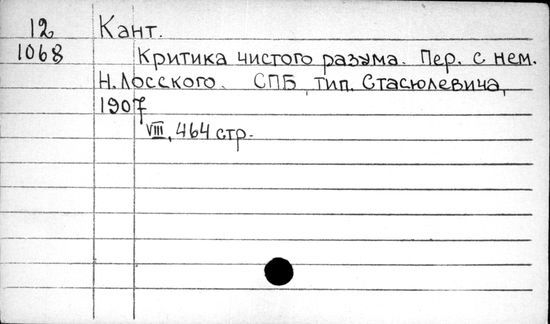 12 Кант.
1068 Критика чистого разума. Пер. с нем.
Н. Лосского. СПБ, тип. Стасюлевича,
1907
VIII, 464 стр.